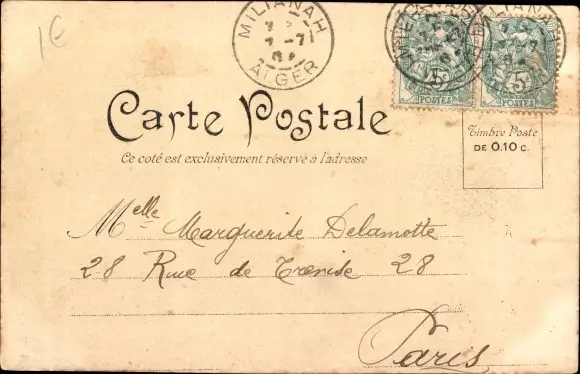 1€
MILIANAH
ALGER
5 5
POSTES POSTES
Carte Postale
Ce coté est exclusivement réservé à l'adresse
Timbre Poste
DE 0.10 C.
Melle Marguerite Delamotte
28 Rue de Trevise 28
Paris